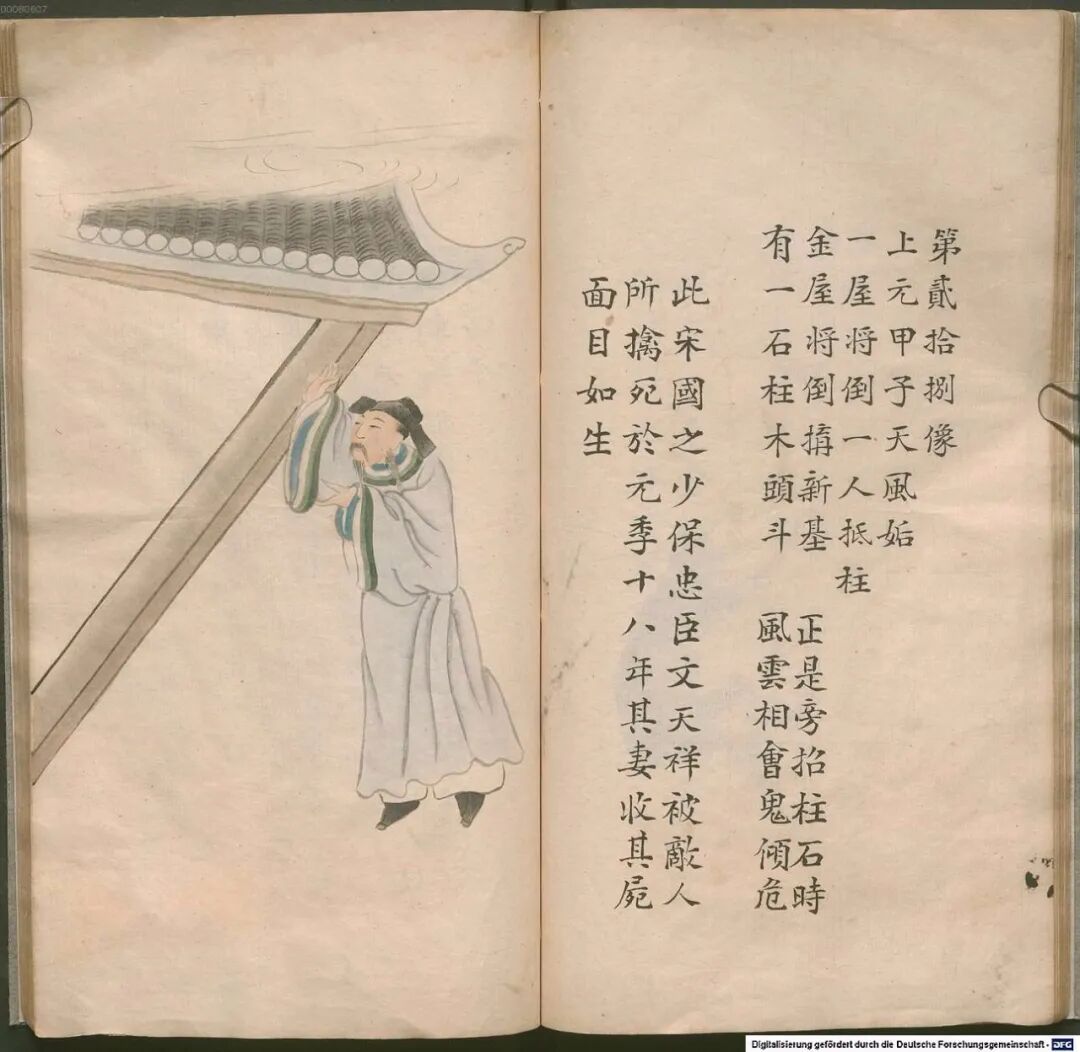 00080607
第貳拾捌像
上元甲子天風姤
一屋将倒一人抵柱
金屋将倒搆新基 正是旁招柱石時
有一石柱木頭斗 風雲相會鬼傾危
此宋國之少保忠臣文天祥被敵人
所擒死於元季十八年其妻收其屍
面目如生
Digitalisierung gefördert durch die Deutsche Forschungsgemeinschaft - DFG